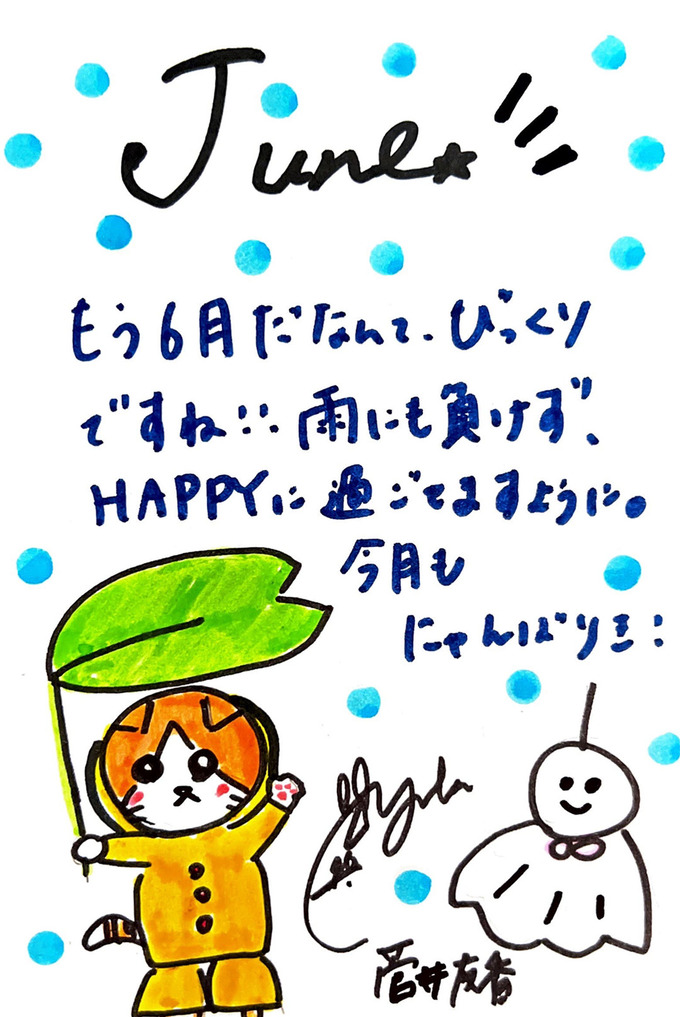 June☆
もう6月だなんて、びっくり
ですね!! 雨にも負けず、
HAPPYに過ごせますように。
今月も
にゃんばりき!
菅井友香